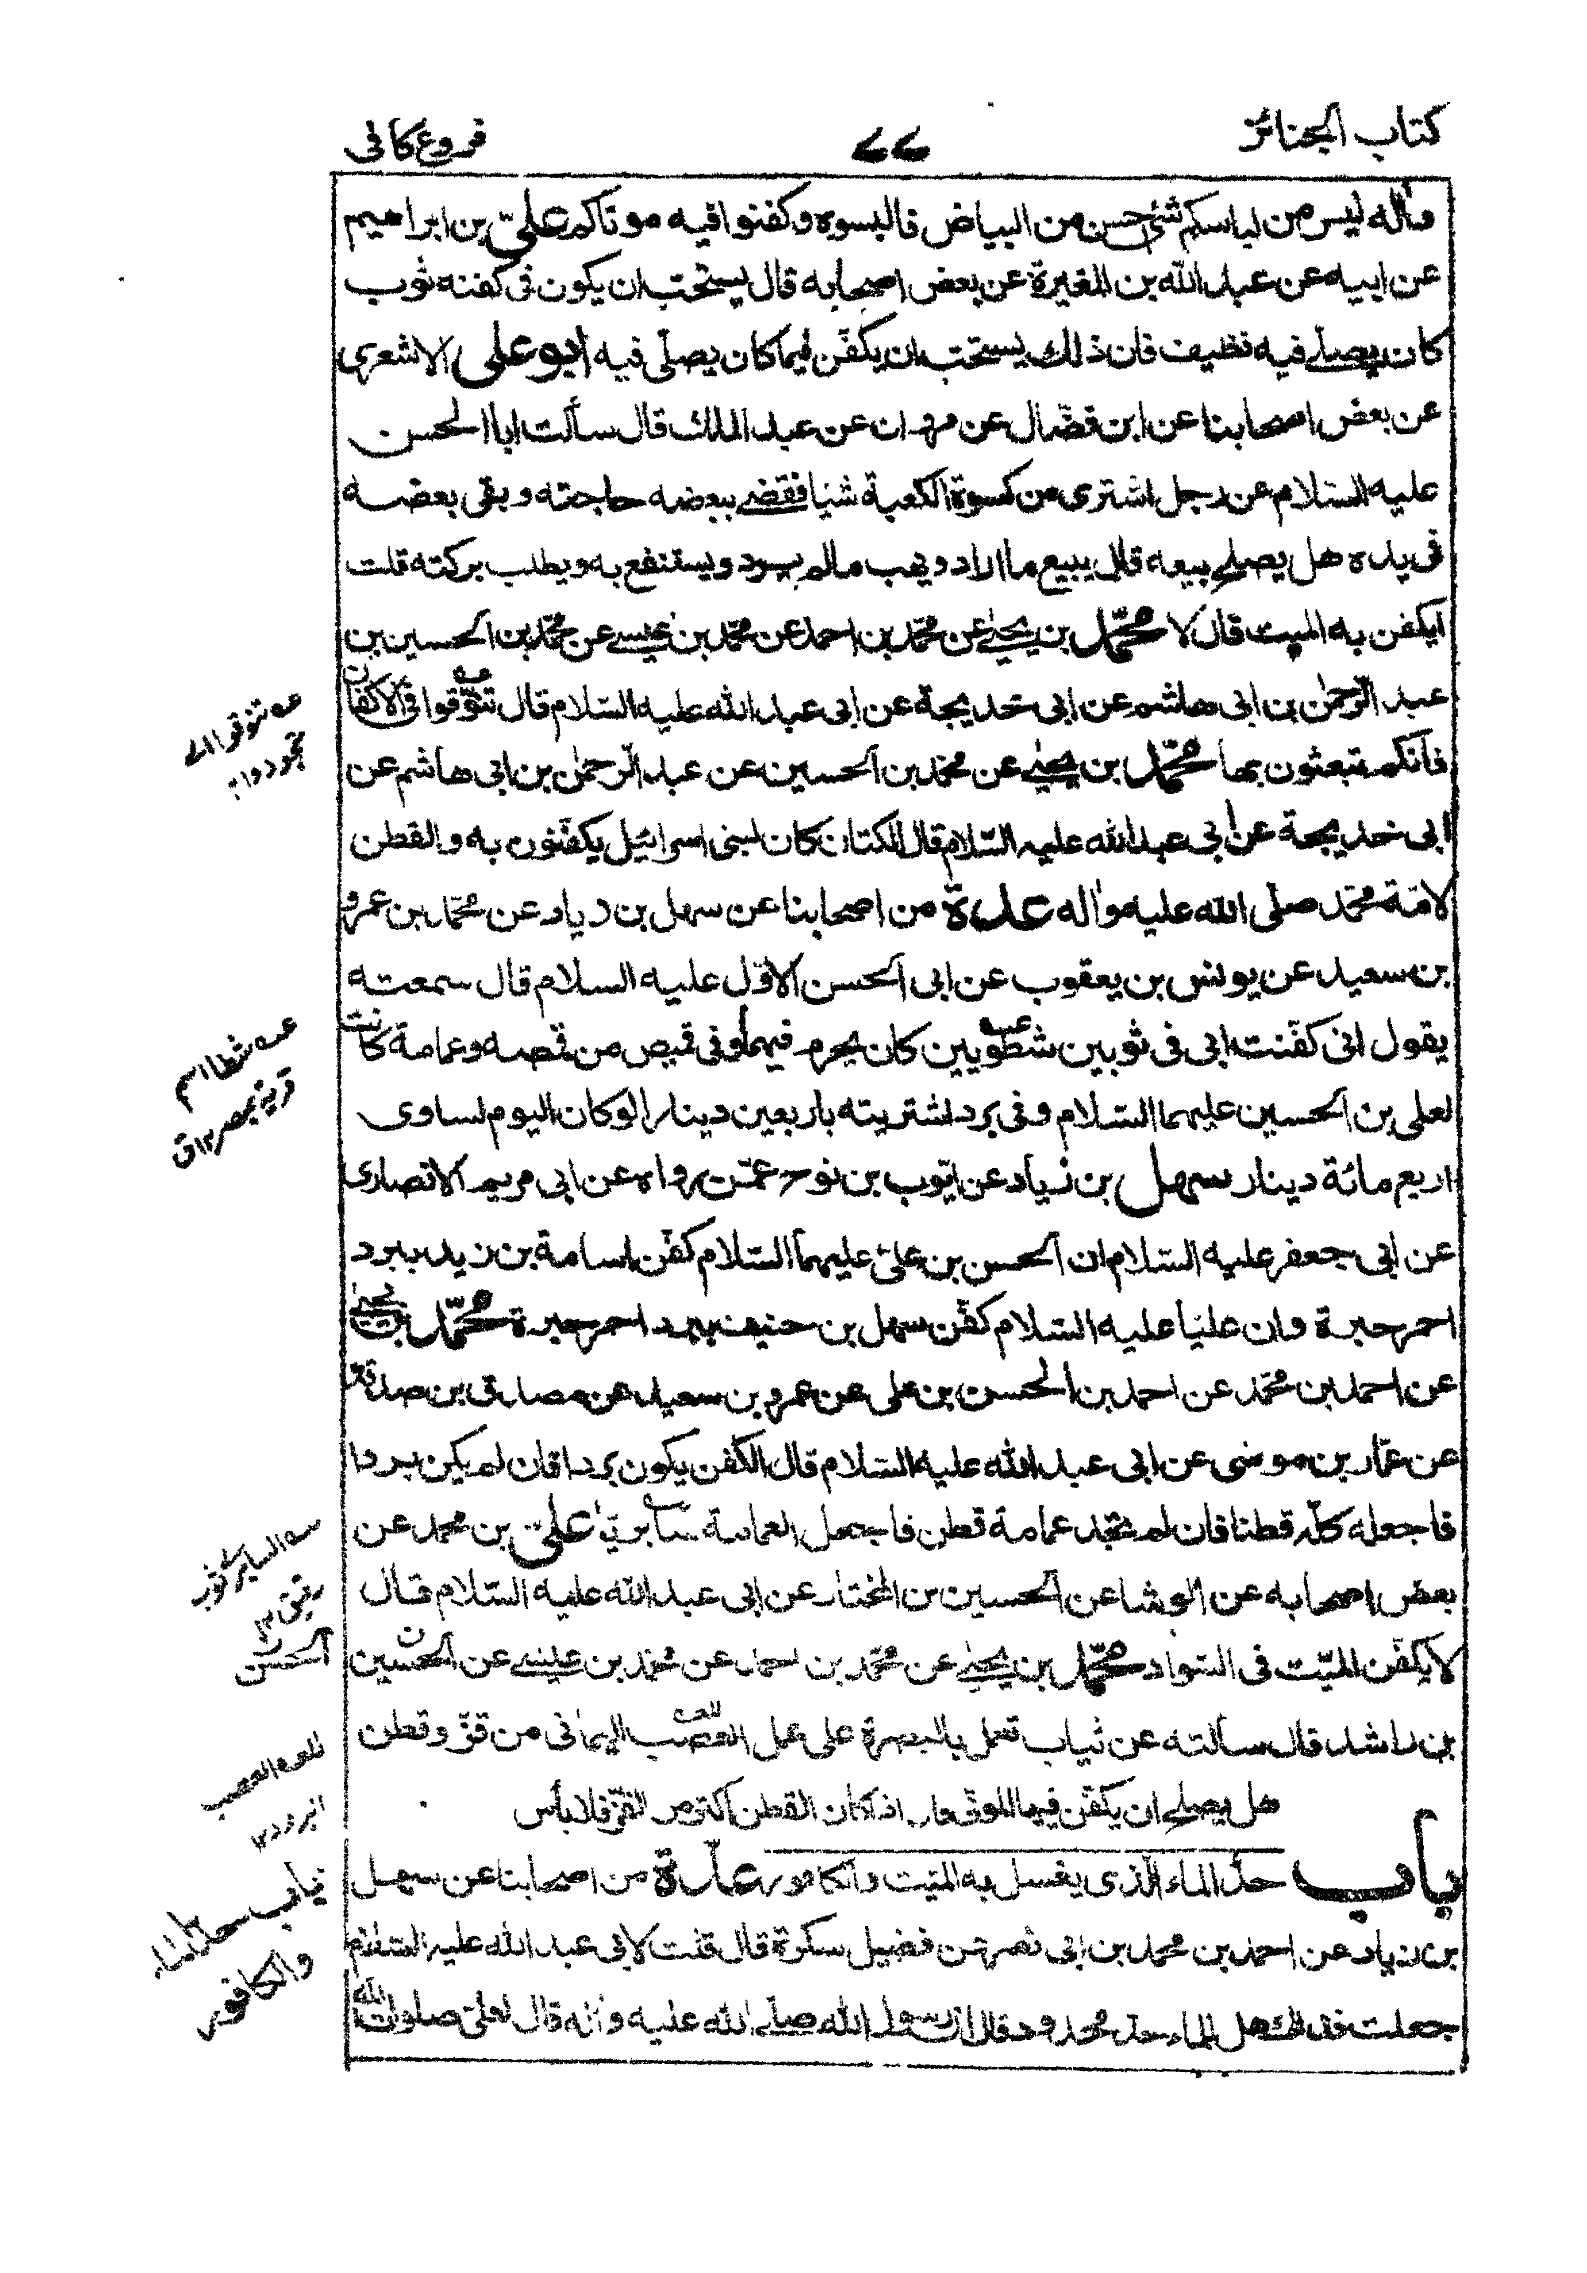 كتاب الجنائز
٧٧
فروع كافى
واٰله ليس من لباسكم شئ احسن من البياض فالبسوه وكفنوا فيه موتاكم علىّ بن ابراهيم
عن ابيه عن عبد الله بن المغيرة عن بعض اصحابه قال يستحب ان يكون فى كفنه ثوب
كان يصلى فيه نظيف فان ذلك يستحب ان يكفّن فيما كان يصلّى فيه ابو على الاشعرى
عن بعض اصحابنا عن ابن فضّال عن مروان عن عبد الملك قال سألت ابا الحسن
عليه السّلام عن رجل اشترى من كسوة الكعبة شيئا فقضى ببعضه حاجته و بقى بعضه
فى يده هل يصلح بيعه قال يبيع ما اراد ويهب مالم يرد ويستنفع به ويطلب بركته قلت
ايكفن به الميت قال لا محمّد بن يحيى عن محمّد بن احمد عن محمّد بن عيسى عن محمّد بن الحسين بن
عبد الرّحمٰن بن ابى هاشم عن ابى خديجة عن ابى عبد الله عليه السّلام قال تنوّقوا فى الاكفان
فانكم تبعثون بها محمّد بن يحيى عن محمّد بن الحسين عن عبد الرّحمٰن بن ابى هاشم عن
ابى خديجة عن ابى عبد الله عليه السّلام قال الكتان كان لبنى اسرائيل يكفّنون به والقطن
لامّة محمّد صلّى الله عليه واٰله عدة من اصحابنا عن سهل بن زياد عن محمّد بن عمرو
بن سعيد عن يونس بن يعقوب عن ابى الحسن الاوّل عليه السلام قال سمعته
يقول انى كفّنت ابى فى ثوبين شطويين كان يحرم فيهما وفى قميص من قمصه وعمامة كانت
لعلى بن الحسين عليهما السّلام وفى برد اشتريته باربعين دينارا لو كان اليوم لساوى
اربع مائة دينار سهل بن زياد عن ايّوب بن نوح عمّن رواه عن ابى مريم الانصارى
عن ابى جعفر عليه السّلام ان الحسن بن علىّ عليهما السّلام كفّن اسامة بن زيد ببرد
احمر حبرة وان عليّا عليه السّلام كفّن سهل بن حنيف ببرد احمر حبرة محمّد بن يحيى
عن احمد بن محمّد عن احمد بن الحسن بن على عن عمرو بن سعيد عن مصدق بن صدقة
عن عمّار بن موسٰى عن ابى عبد الله عليه السّلام قال الكفن يكون بردا فان لم يكن بردا
فاجعله كلّه قطنا فان لم تجد عمامة قطن فاجعل العمامة سابريّا علىّ بن محمد عن
بعض اصحابه عن الوشا عن الحسين بن المختار عن ابى عبد الله عليه السّلام قال
لا يكفّن الميّت فى السّواد محمّد بن يحيى عن محمّد بن احمد عن محمّد بن عيسى عن الحسين
بن راشد قال سألته عن ثياب تعمل بالبصرة على عمل العصب اليمانى من قزّ و قطن
هل يصلح ان يكفّن فيها الموتى قال اذا كان القطن اكثر من القزّ فلا بأس
باب حدّ الماء الّذى يغسل به الميّت والكافور عدّة من اصحابنا عن سهل
بن زياد عن احمد بن محمد بن ابى نصر عن فضيل سكرة قال قلت لابى عبد الله عليه السّلام
جعلت فداك هل للماء حدّ محدود قال ان رسول الله صلّى الله عليه واٰله قال لعلىّ صلوات الله
عه تنوقوا اى
تجودوا
عه شطا اسم
قرية بمصر ق
سه السابرى ثوب
رقيق
الحسن
للعه العصب
البرود
باب حد الماء
والكافور